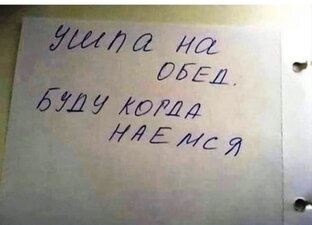 УШЛА НА
ОБЕД.
БУДУ КОГДА
НАЕМСЯ